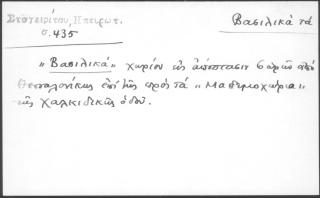 Σταγειρίτου, Ηπειρωτ.
Βασιλικά τά
σ. 435
"Βασιλικά" χωρίον εἰς ἀπόστασιν 6 ὡρῶν ἀπό
Θεσσαλονίκης ἐπί τῆς πρός τά "Μαδεμοχώρια"
τῆς Χαλκιδικῆς ὁδοῦ.